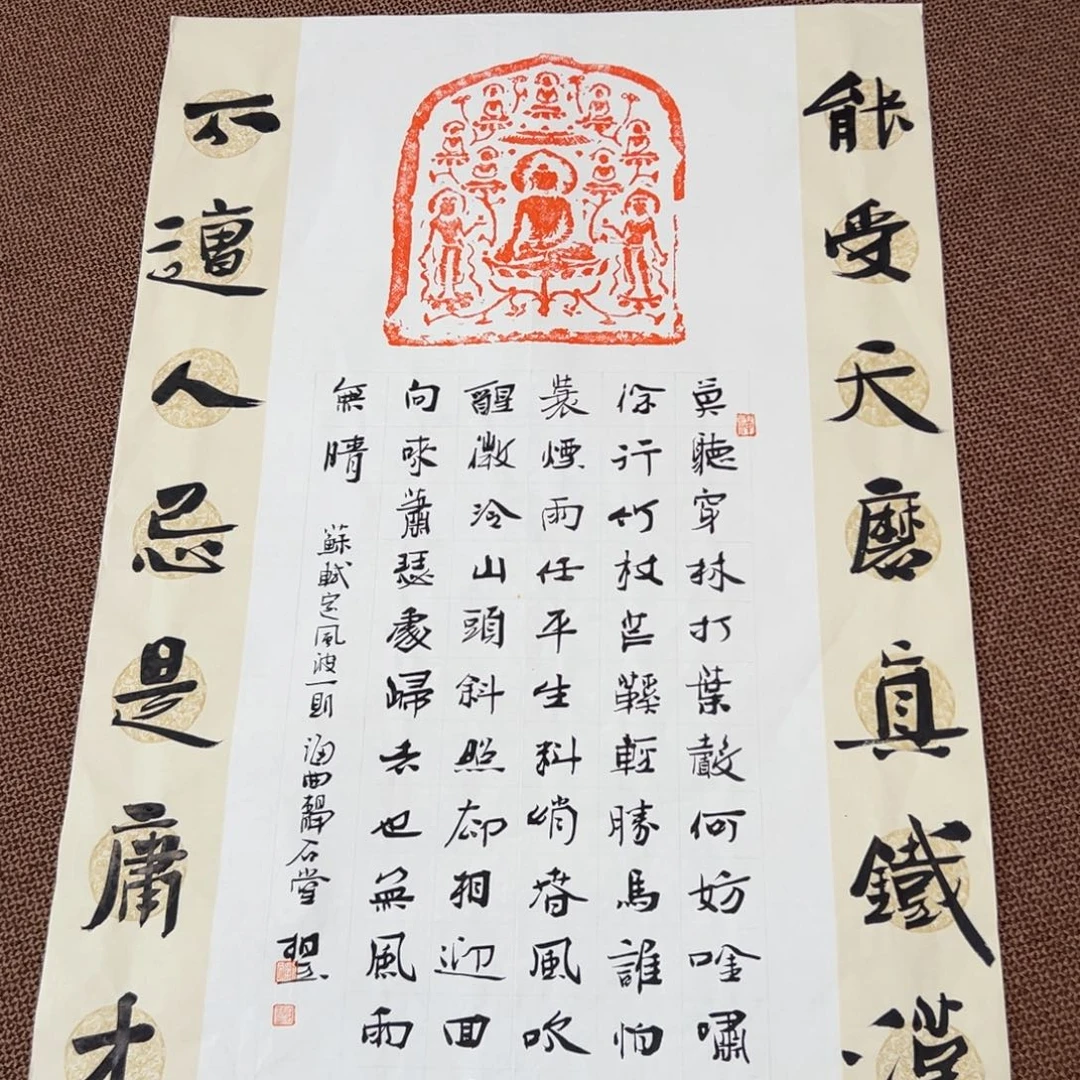 能受天磨眞鐵漢
莫聽穿林打葉聲何妨唫嘯
徐行竹杖芒鞵輕勝馬誰怕
蓑煙雨任平生料峭春風吹
醒微冷山頭斜照却相迎回
向來蕭瑟處歸去也無風雨
無晴
蘇軾定風波一則 海曲靜石堂
不遭人忌是庸才